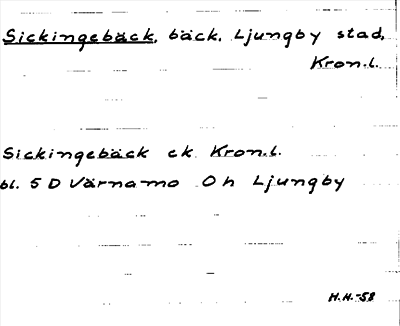 Sickingebäck, bäck, Ljungby stad,
Kron.l.
Sickingebäck ek. Kron.l.
bl. 5 D Värnamo Oh Ljungby
H.H.-58